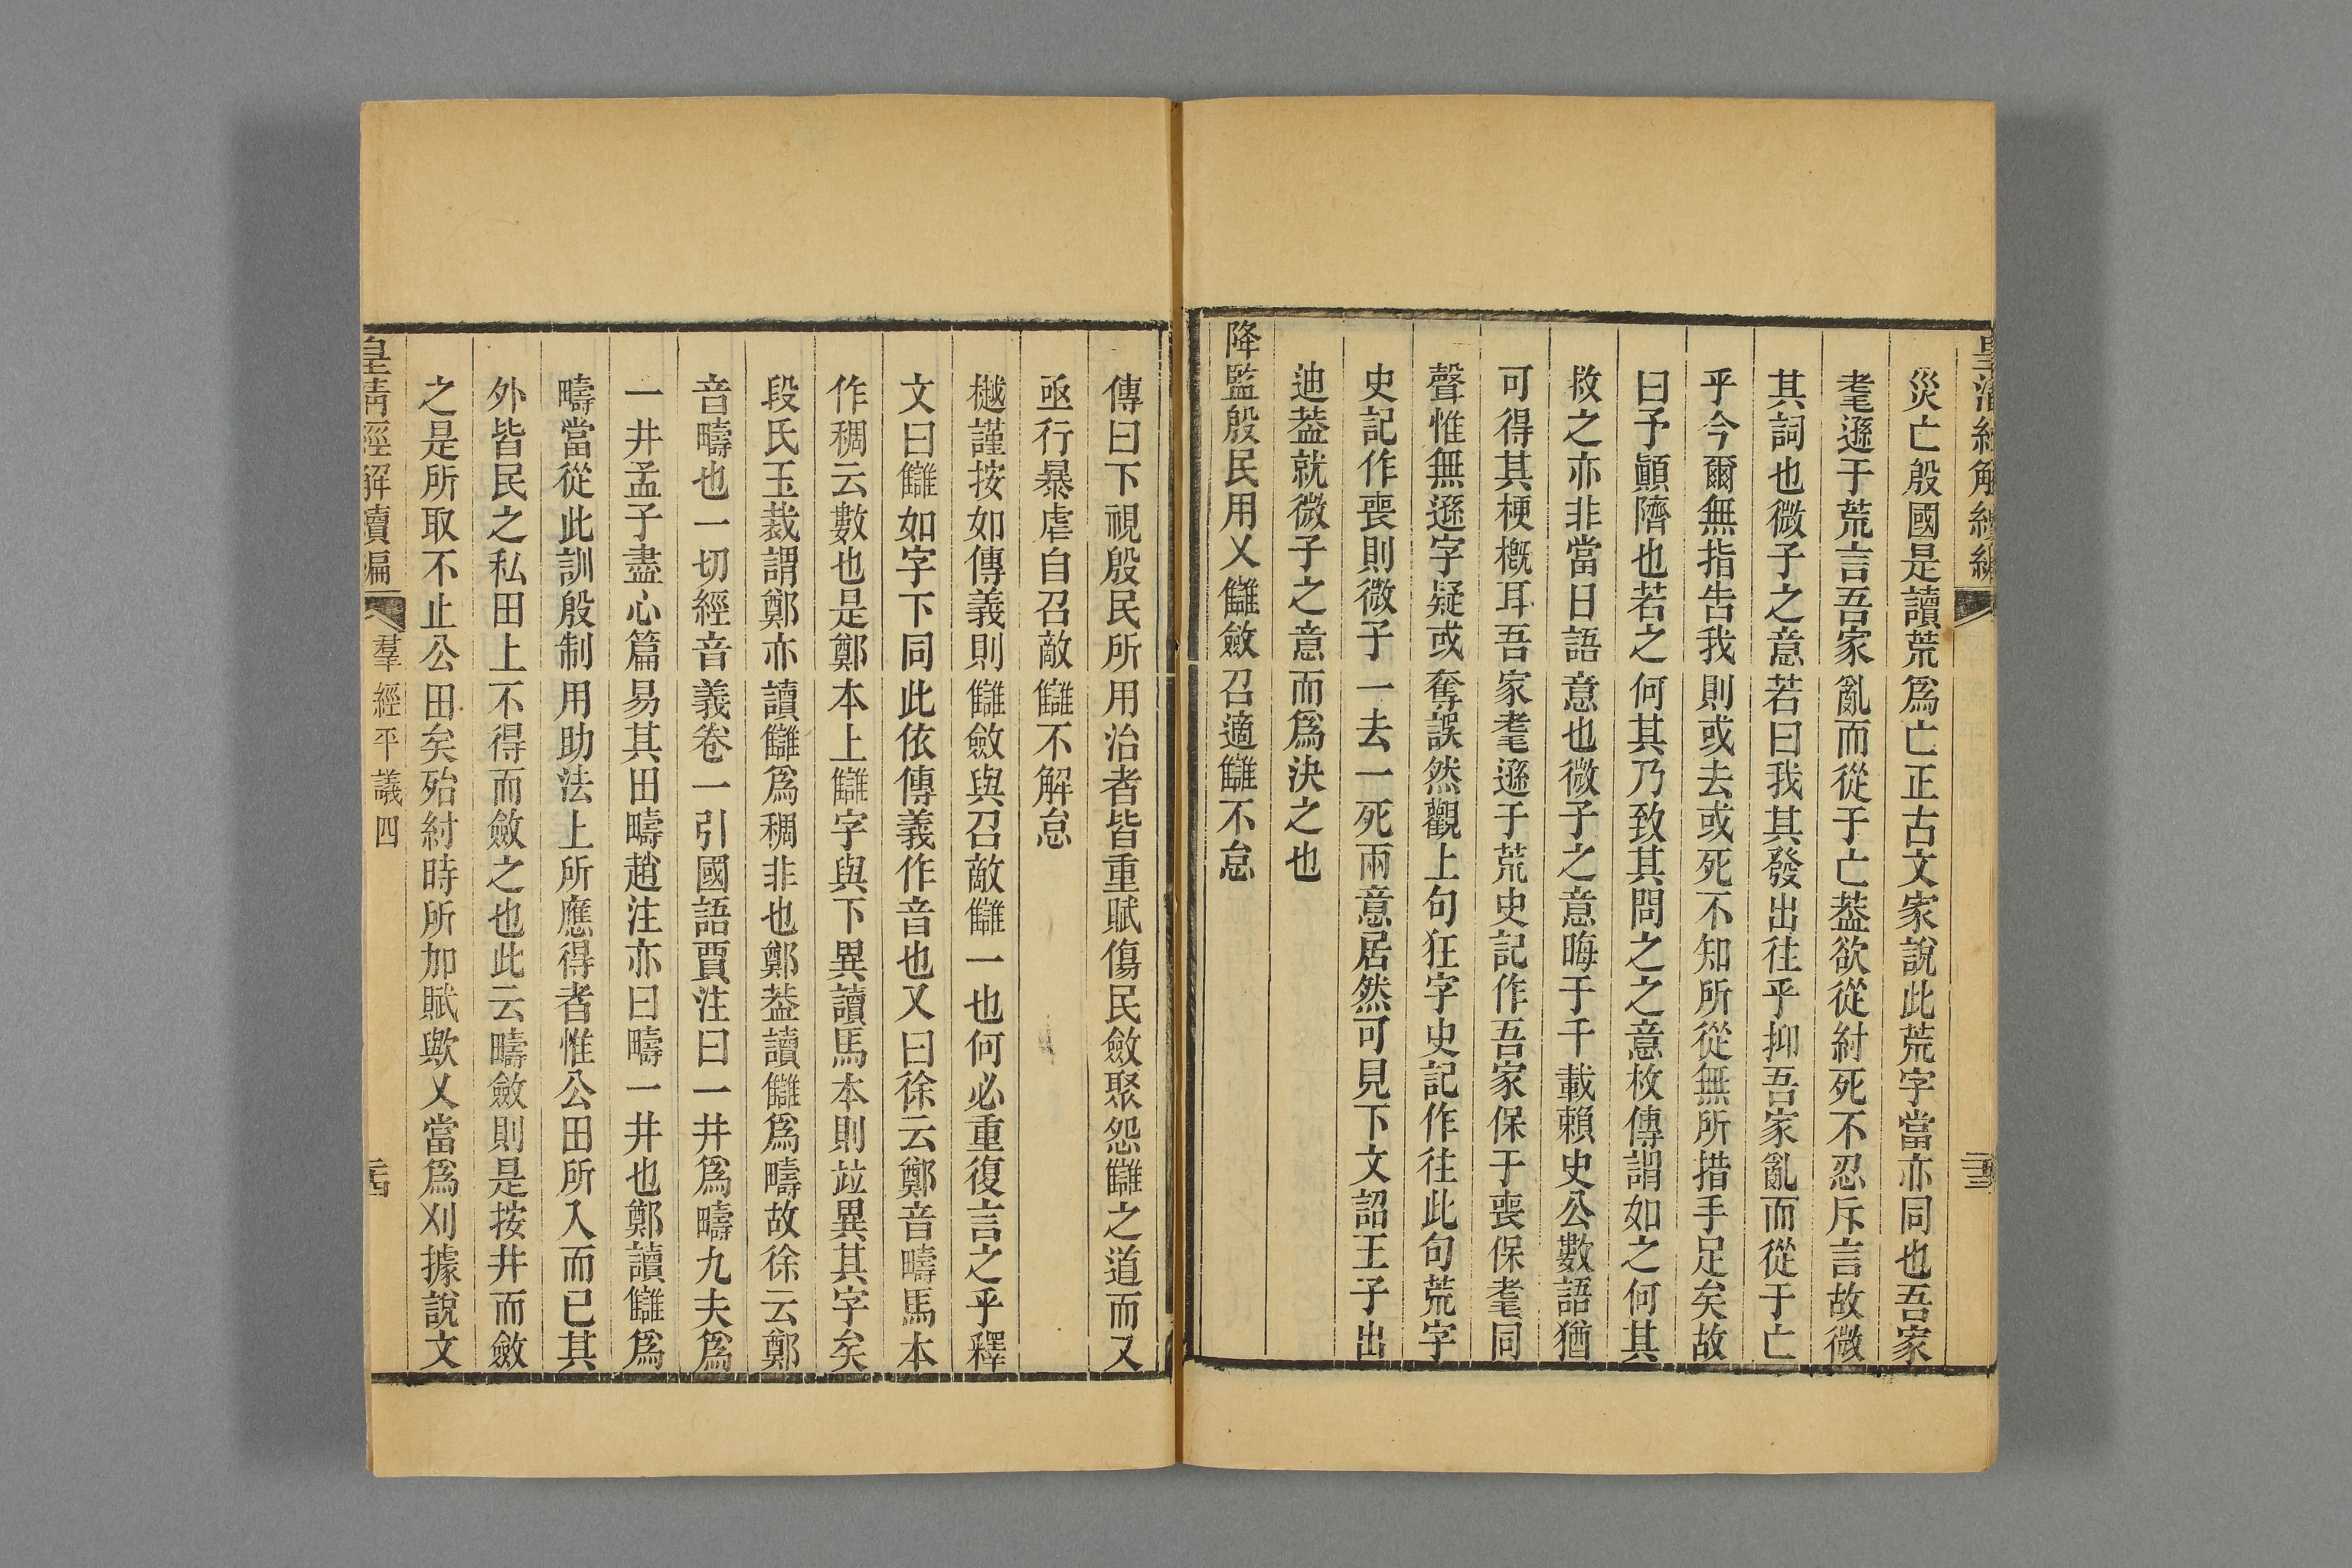 皇清經解續編
災亡殷國是讀荒爲亡正古文家說此荒字當亦同也吾家
耄遜于荒言吾家亂而從于亡葢欲從紂死不忍斥言故微
其詞也微子之意若曰我其發出往乎抑吾家亂而從于亡
乎今爾無指告我則或去或死不知所從無所措手足矣故
曰予顚隮也若之何其乃致其問之之意枚傳謂如之何其
救之亦非當日語意也微子之意晦于千載賴史公數語猶
可得其梗槪耳吾家耄遜于荒史記作吾家保于喪保耄同
聲惟無遜字疑或奪誤然觀上句狂字史記作往此句荒字
史記作喪則微子一去一死兩意居然可見下文詔王子出
迪葢就微子之意而爲決之也
降監殷民用乂讎斂召適讎不怠
傳曰下視殷民所用治者皆重賦傷民斂聚怨讎之道而又
亟行暴虐自召敵讎不解怠
樾謹按如傳義則讎斂與召敵讎一也何必重復言之乎釋
文曰讎如字下同此依傳義作音也又曰徐云鄭音疇馬本
作稠云數也是鄭本上讎字與下異讀馬本則竝異其字矣
段氏玉裁謂鄭亦讀讎爲稠非也鄭葢讀讎爲疇故徐云鄭
音疇也一切經音義卷一引國語賈注曰一井爲疇九夫爲
一井孟子盡心篇易其田疇趙注亦曰疇一井也鄭讀讎爲
疇當從此訓殷制用助法上所應得者惟公田所入而已其
外皆民之私田上不得而斂之也此云疇斂則是按井而斂
之是所取不止公田矣殆紂時所加賦歟乂當爲刈據說文
皇清經解續編
羣經平議四